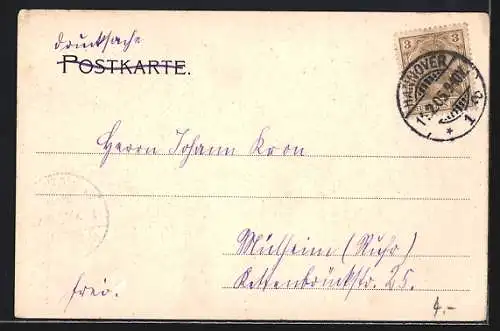 Drucksache
POSTKARTE.
3 3
HANNOVER
1 b
Herrn Johann Kron
Mülheim (Ruhr)
Kettenbrückstr. 25.
frei.
4.-